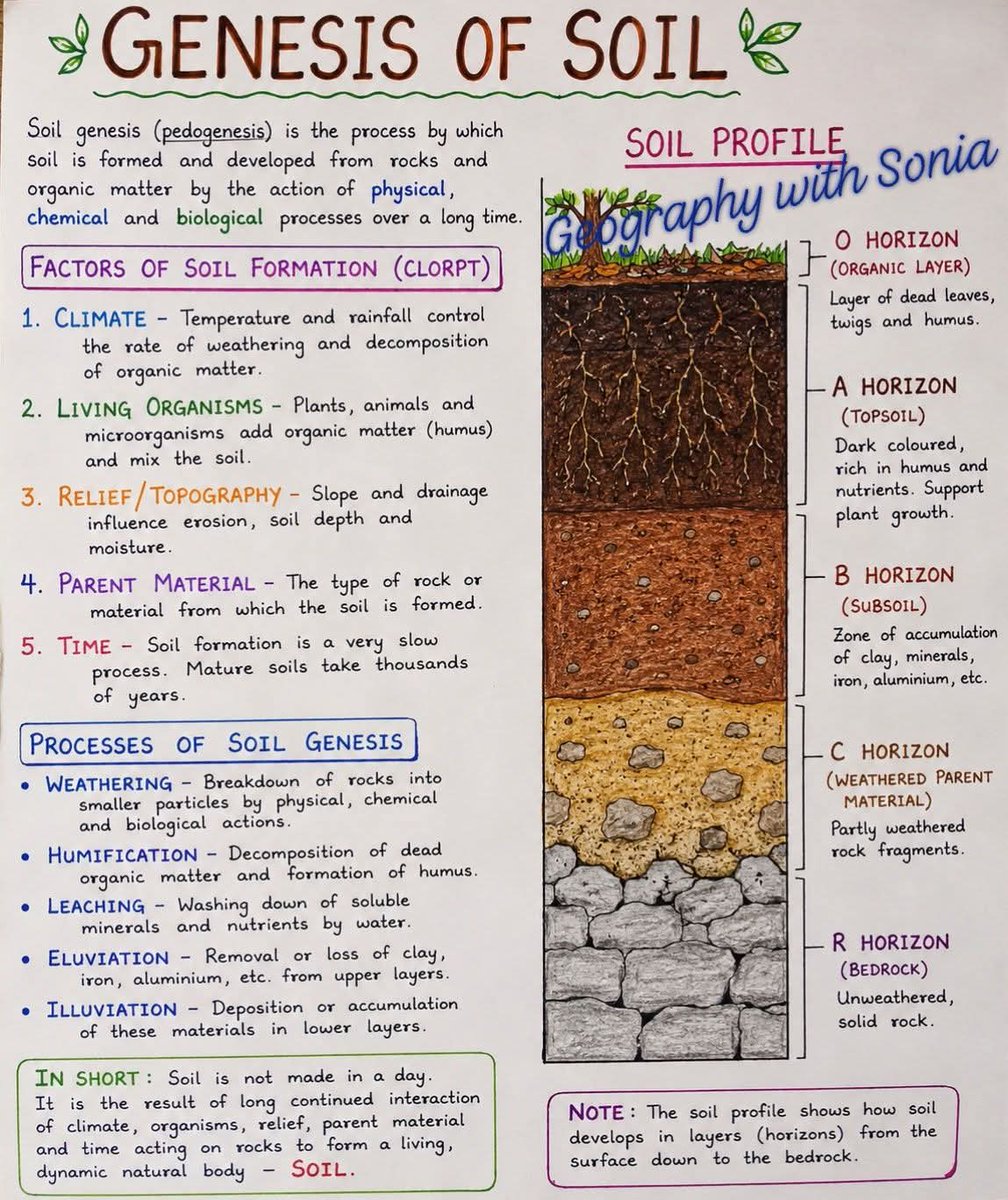 GENESIS OF SOIL
Soil genesis (pedogenesis) is the process by which
soil is formed and developed from rocks and
organic matter by the action of physical,
chemical and biological processes over a long time.
FACTORS OF SOIL FORMATION (CLORPT)
1. CLIMATE – Temperature and rainfall control
the rate of weathering and decomposition
of organic matter.
2. LIVING ORGANISMS – Plants, animals and
microorganisms add organic matter (humus)
and mix the soil.
3. RELIEF/TOPOGRAPHY – Slope and drainage
influence erosion, soil depth and
moisture.
4. PARENT MATERIAL – The type of rock or
material from which the soil is formed.
5. TIME – Soil formation is a very slow
process. Mature soils take thousands
of years.
PROCESSES OF SOIL GENESIS
• WEATHERING – Breakdown of rocks into
smaller particles by physical, chemical
and biological actions.
• HUMIFICATION – Decomposition of dead
organic matter and formation of humus.
• LEACHING – Washing down of soluble
minerals and nutrients by water.
• ELUVIATION – Removal or loss of clay,
iron, aluminium, etc. from upper layers.
• ILLUVIATION – Deposition or accumulation
of these materials in lower layers.
IN SHORT: Soil is not made in a day.
It is the result of long continued interaction
of climate, organisms, relief, parent material
and time acting on rocks to form a living,
dynamic natural body – SOIL.
SOIL PROFILE
Geography with Sonia
O HORIZON
(ORGANIC LAYER)
Layer of dead leaves,
twigs and humus.
A HORIZON
(TOPSOIL)
Dark coloured,
rich in humus and
nutrients. Support
plant growth.
B HORIZON
(SUBSOIL)
Zone of accumulation
of clay, minerals,
iron, aluminium, etc.
C HORIZON
(WEATHERED PARENT
MATERIAL)
Partly weathered
rock fragments.
R HORIZON
(BEDROCK)
Unweathered,
solid rock.
NOTE: The soil profile shows how soil
develops in layers (horizons) from the
surface down to the bedrock.